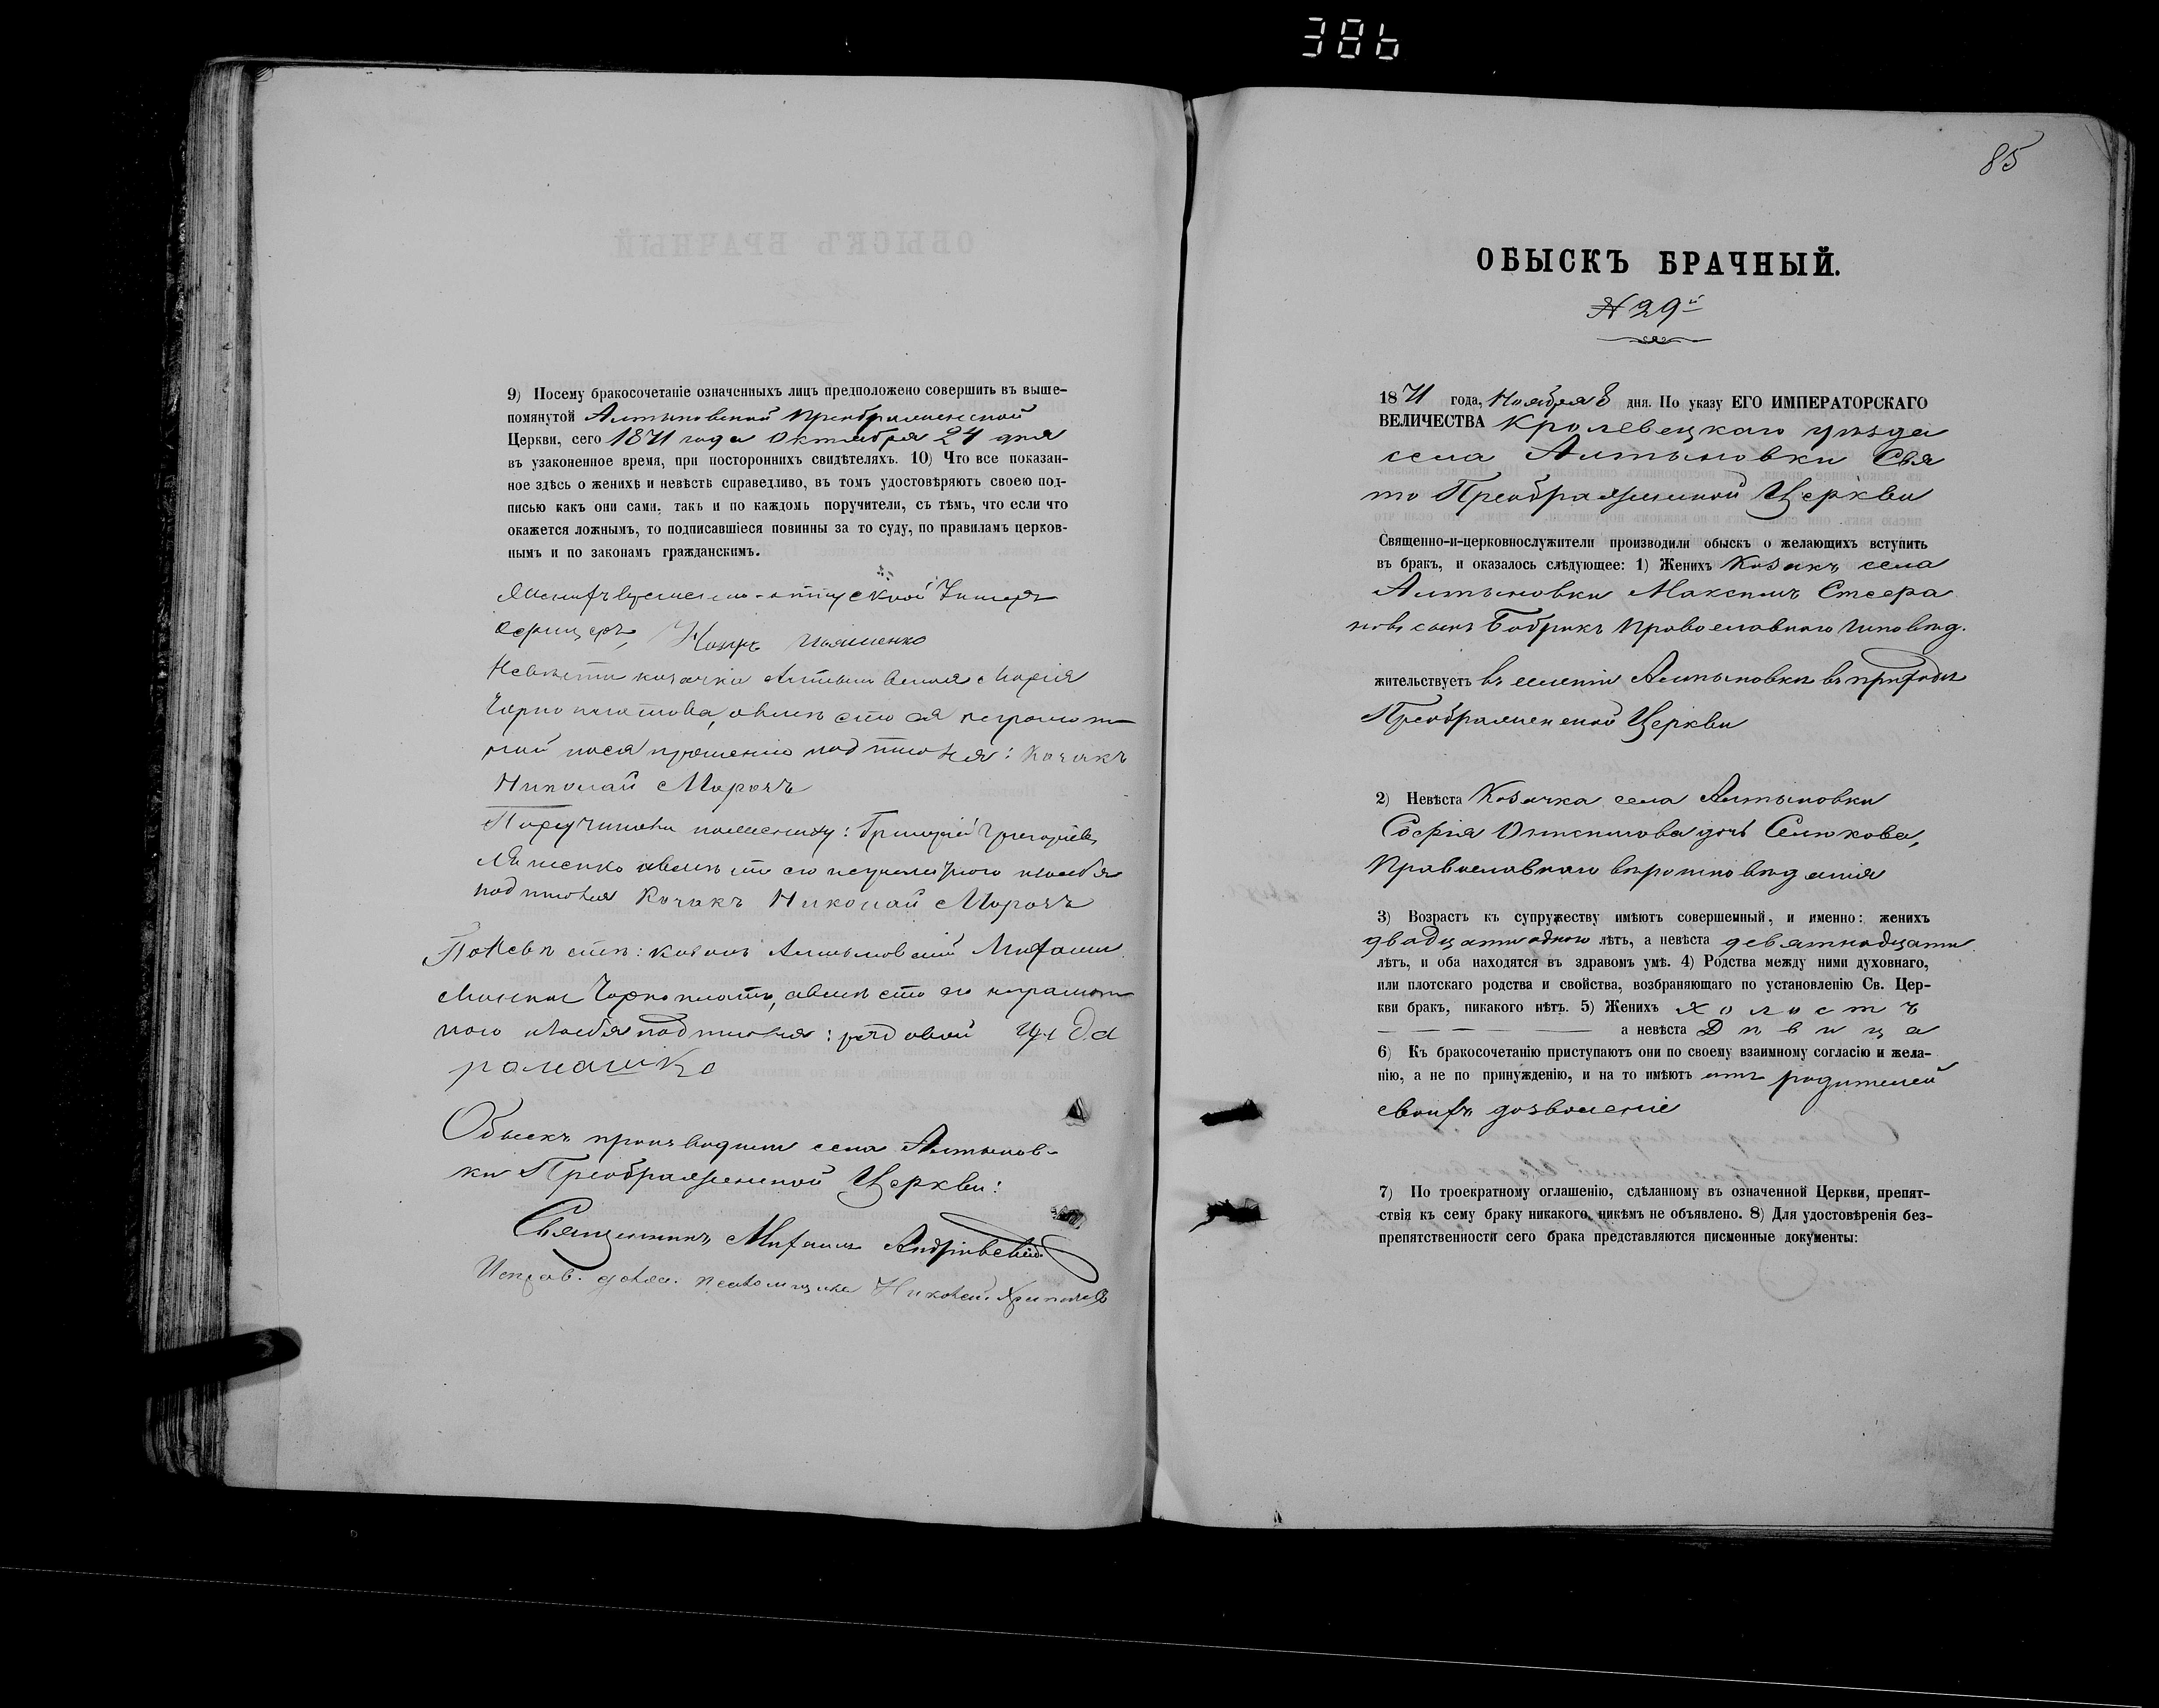 386
9) Посему бракосочетаніе означенныхъ лицъ предположено совершить въ выше-
помянутой Алтыновской Преображенской
Церкви, сего 1871 года Октября 24 дня
въ узаконенное время, при постороннихъ свидѣтеляхъ. 10) Что все показан-
ное здѣсь о женихѣ и невѣстѣ справедливо, въ томъ удостовѣряютъ своею под-
писью какъ они сами, такъ и по каждомъ поручители, съ тѣмъ, что если что
окажется ложнымъ, то подписавшіеся повинны за то суду, по правиламъ церков-
нымъ и по законамъ гражданскимъ.
Женихъ временно-отпускной Унтеръ
Офицеръ,
Невѣста козачка Марія
а вмѣсто ея неграмот
ной подписался: Козакъ
Николай Морозъ
По женихѣ: Григорій Григоріевъ
а вмѣсто его неграмотного
подписался Козакъ Николай Морозъ
По Невѣстѣ: козакъ Алтыновскій Михаилъ
а вмѣсто его неграмот
ного подписался: рядовой
ромашко
Обыскъ производили села Алтынов-
ки Преображенской Церкви:
Священникъ Михаилъ Андріевскій
Исправ. долж. псаломщика Николай
85
ОБЫСКЪ БРАЧНЫЙ.
№ 29й
1871 года, Ноября 8 дня. По указу ЕГО ИМПЕРАТОРСКАГО
ВЕЛИЧЕСТВА Кролевецкаго уѣзда
села Алтыновки Свя
то Преображенной Церкви
Священно-и-церковнослужители производили обыскъ о желающихъ вступить
въ бракъ, и оказалось слѣдующее: 1) Женихъ Козакъ села
Алтыновки Максимъ Стефа
новъ сынъ Бобрикъ Православнаго Исповѣд.
жительствуетъ въ селеніи Алтыновки въ приходѣ
Преображенской Церкви
2) Невѣста Козачка села Алтыновки
София дочь Селюкова,
Православнаго вѣроисповѣданія
3) Возрастъ къ супружеству имѣютъ совершенный, и именно: женихъ
двадцати одного лѣтъ, а невѣста девятнадцати
лѣтъ, и оба находятся въ здравомъ умѣ. 4) Родства между ними духовнаго,
или плотскаго родства и свойства, возбраняющаго по установленію Св. Цер-
кви бракъ, никакого нѣтъ. 5) Женихъ холостъ
а невѣста Дѣвица
6) Къ бракосочетанію приступаютъ они по своему взаимному согласію и жела-
нію, а не по принужденію, и на то имѣютъ отъ родителей
своихъ дозволеніе
7) По троекратному оглашенію, сдѣланному въ означенной Церкви, препят-
ствія къ сему браку никакого, никѣмъ не объявлено. 8) Для удостовѣренія без-
препятственности сего брака представляются писменные документы: